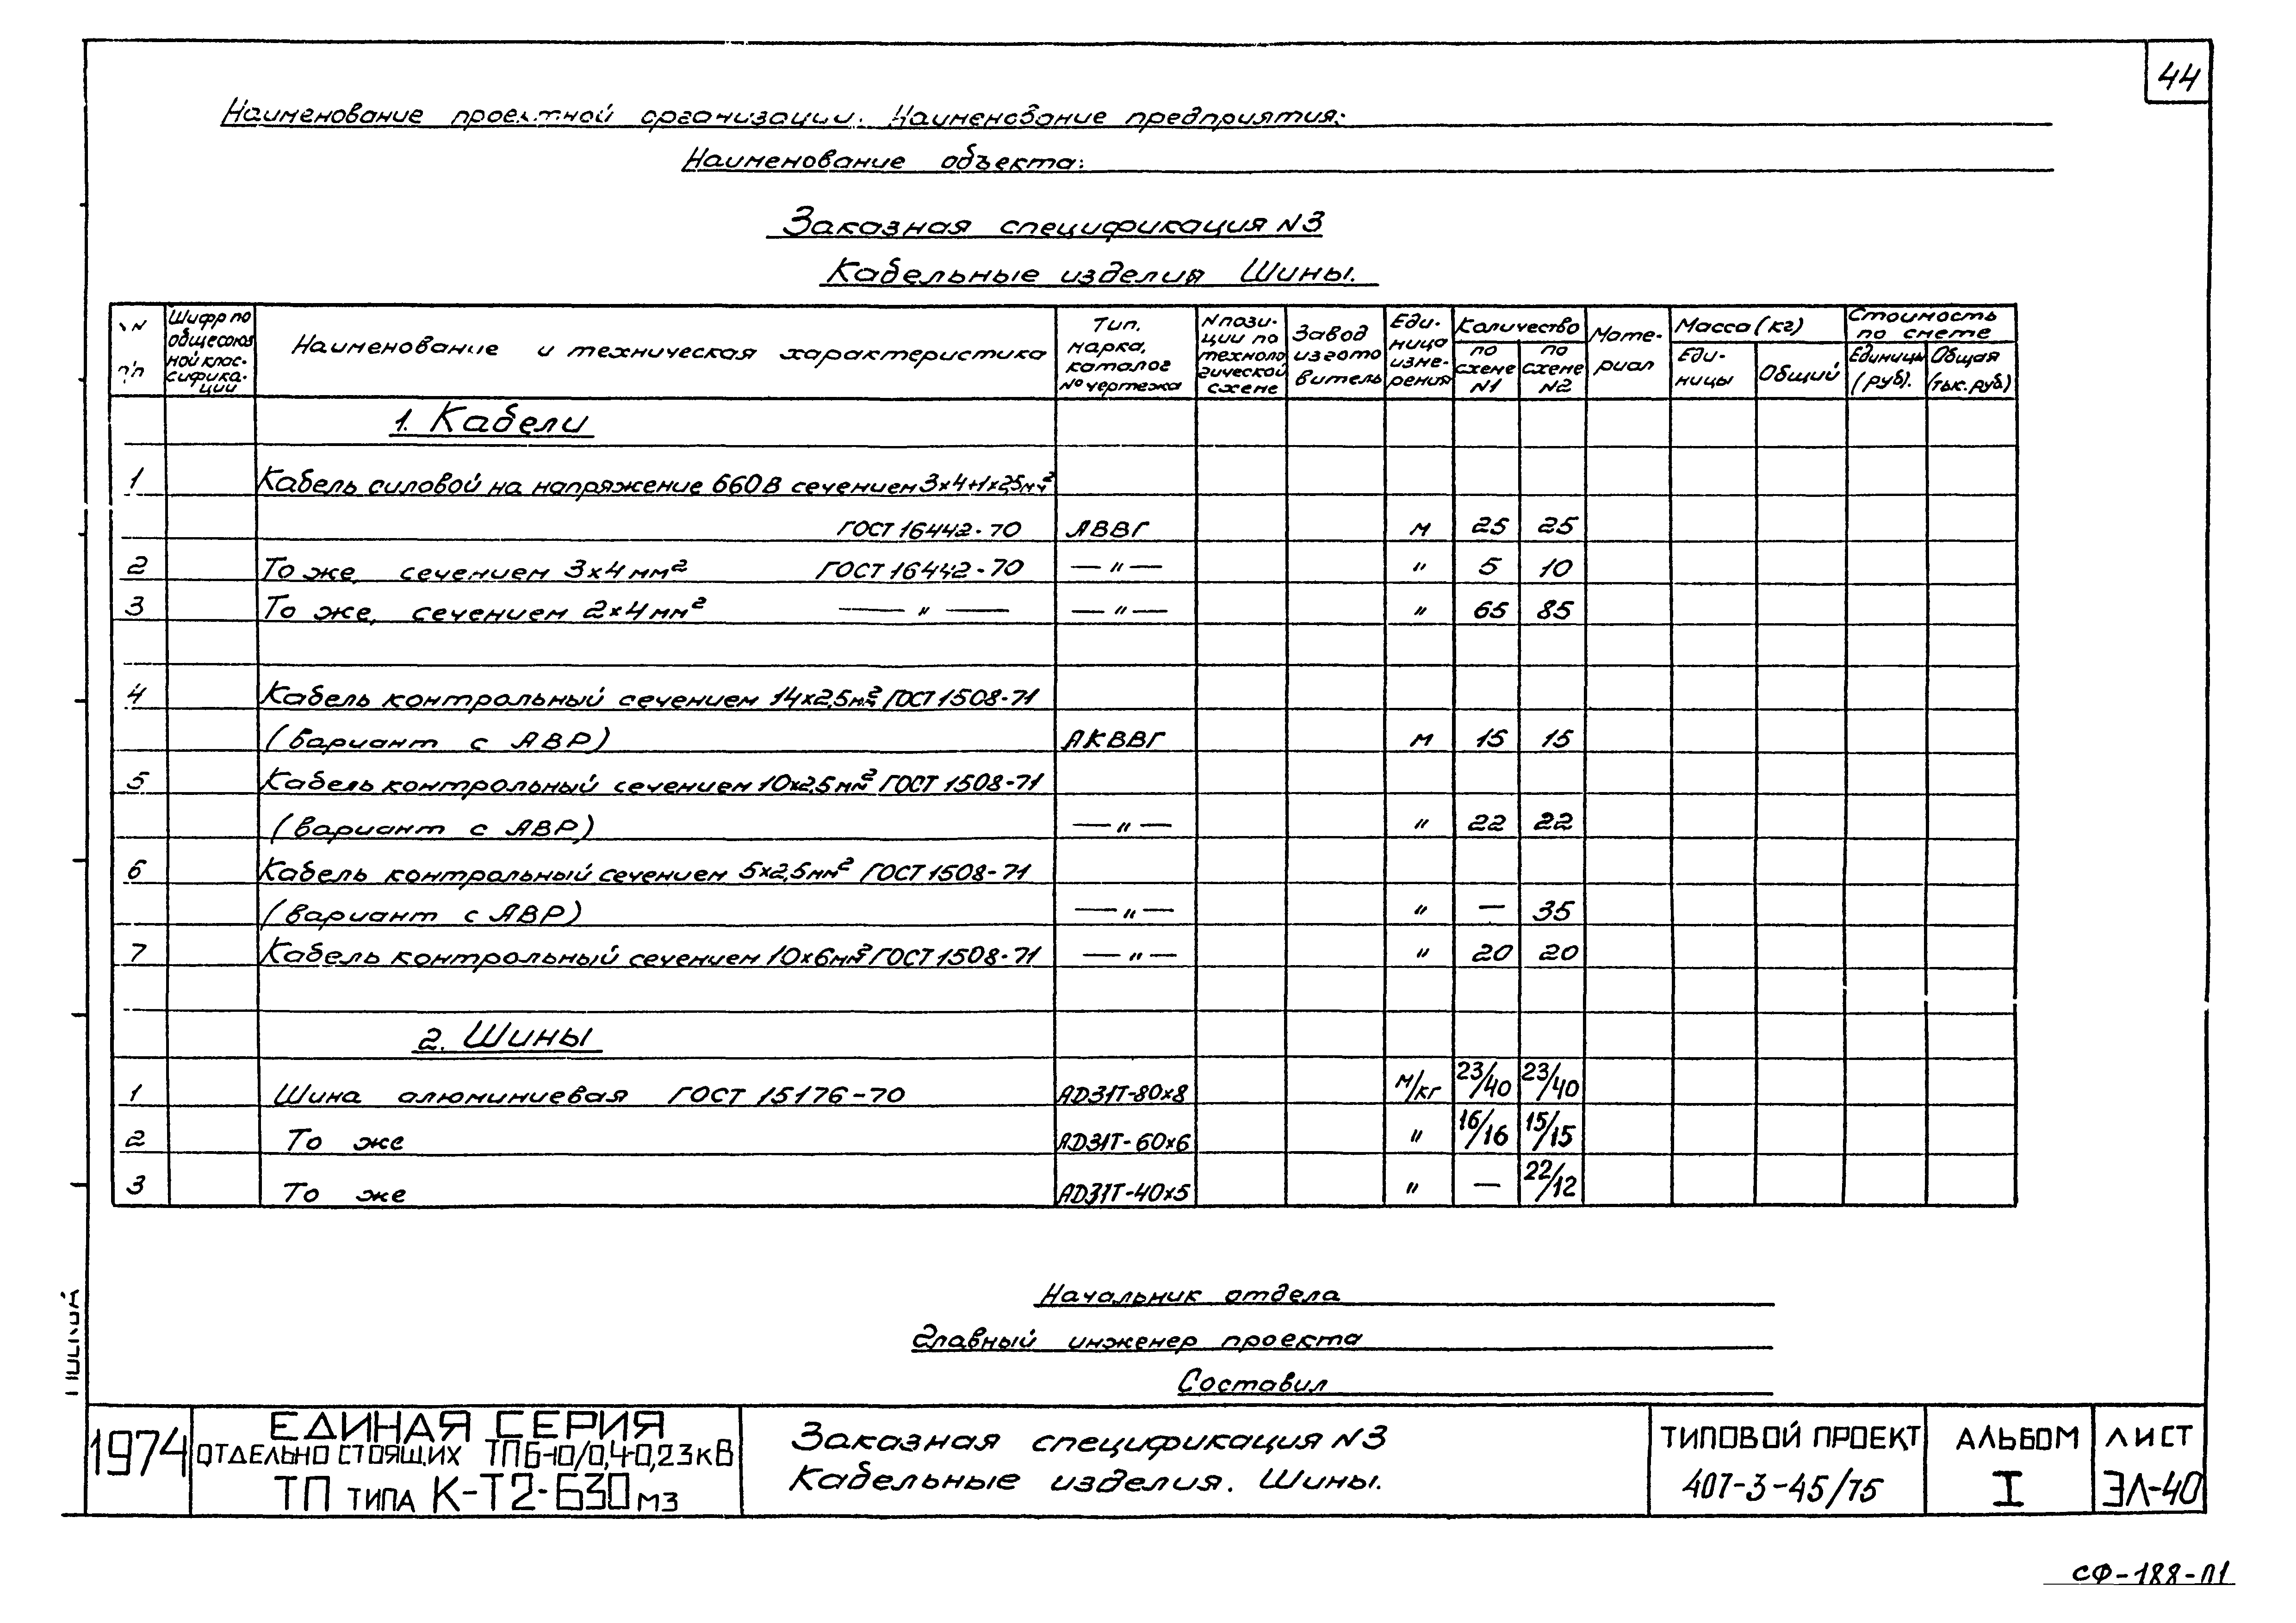 44
Наименование проектной организации. Наименование предприятия:
Наименование объекта:
Заказная спецификация N3
Кабельные изделия Шины.
N п/п | Шифр по общесоюзной классификации | Наименование и техническая характеристика | Тип, марка, каталог № чертежа | N позиции по технологической схеме | Завод изготовитель | Единица измерения | Количество по схене N1 | по схене N2 | Материал | Масса (кг) Единицы | Общий | Стоимость по смете Единицы (руб). | Общая (тыс. руб)
1. Кабели
1 Кабель силовой на напряжение 660В сечением 3х4+1х2,5мм²
ГОСТ 16442-70 АВВГ м 25 25
2 То же, сечением 3х4мм² ГОСТ 16442-70 —"— " 5 10
3 То же, сечением 2х4мм² —"— —"— " 65 85
4 Кабель контрольный сечением 14х2,5мм² ГОСТ 1508-71
(вариант с АВР) АКВВГ м 15 15
5 Кабель контрольный сечением 10х2,5мм² ГОСТ 1508-71
(вариант с АВР) —"— " 22 22
6 Кабель контрольный сечением 5х2,5мм² ГОСТ 1508-71
(вариант с АВР) —"— " — 35
7 Кабель контрольный сечением 10х6мм² ГОСТ 1508-71 —"— " 20 20
2. Шины
1 Шина алюминиевая ГОСТ 15176-70 АД31Т-80х8 м/кг 23/40 23/40
2 То же АД31Т-60х6 " 16/16 15/15
3 То же АД31Т-40х5 " — 22/12
Начальник отдела
Главный инженер проекта
Составил
1974
ЕДИНАЯ СЕРИЯ
ОТДЕЛЬНО СТОЯЩИХ ТП 6-10/0,4-0,23кВ
ТП ТИПА К-Т2-630 М3
Заказная спецификация N3
Кабельные изделия. Шины.
ТИПОВОЙ ПРОЕКТ
407-3-45/75
АЛЬБОМ
I
ЛИСТ
ЭЛ-40
СФ-188-01